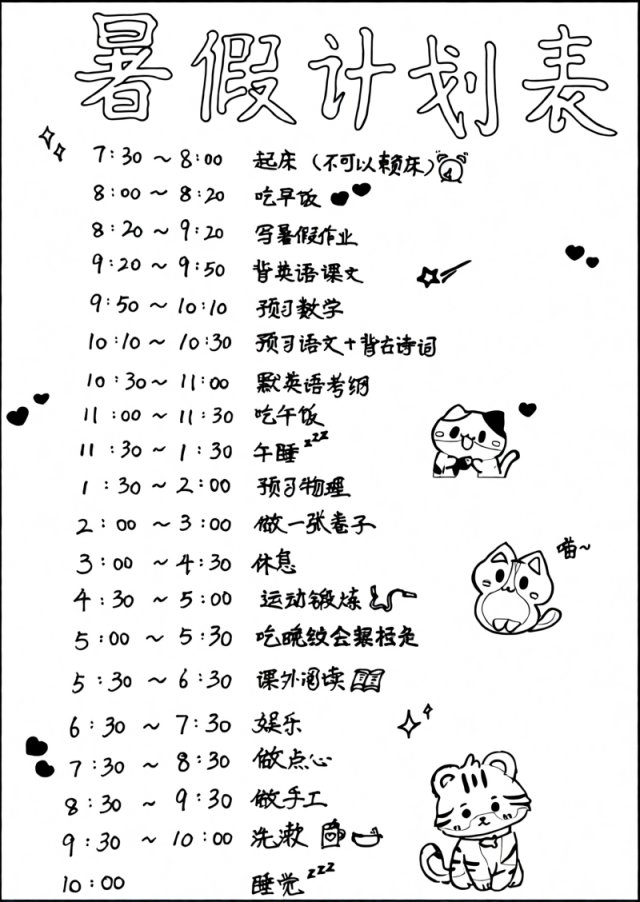 暑假计划表
7:30 ~ 8:00 起床（不可以赖床）
8:00 ~ 8:20 吃早饭
8:20 ~ 9:20 写暑假作业
9:20 ~ 9:50 背英语课文
9:50 ~ 10:10 预习数学
10:10 ~ 10:30 预习语文+背古诗词
10:30 ~ 11:00 默英语考纲
11:00 ~ 11:30 吃午饭
11:30 ~ 1:30 午睡 zzz
1:30 ~ 2:00 预习物理
2:00 ~ 3:00 做一张卷子
3:00 ~ 4:30 休息
喵~
4:30 ~ 5:00 运动锻炼
5:00 ~ 5:30 吃晚
5:30 ~ 6:30 课外阅读
6:30 ~ 7:30 娱乐
7:30 ~ 8:30 做点心
8:30 ~ 9:30 做手工
9:30 ~ 10:00 洗漱
10:00 睡觉 zzz